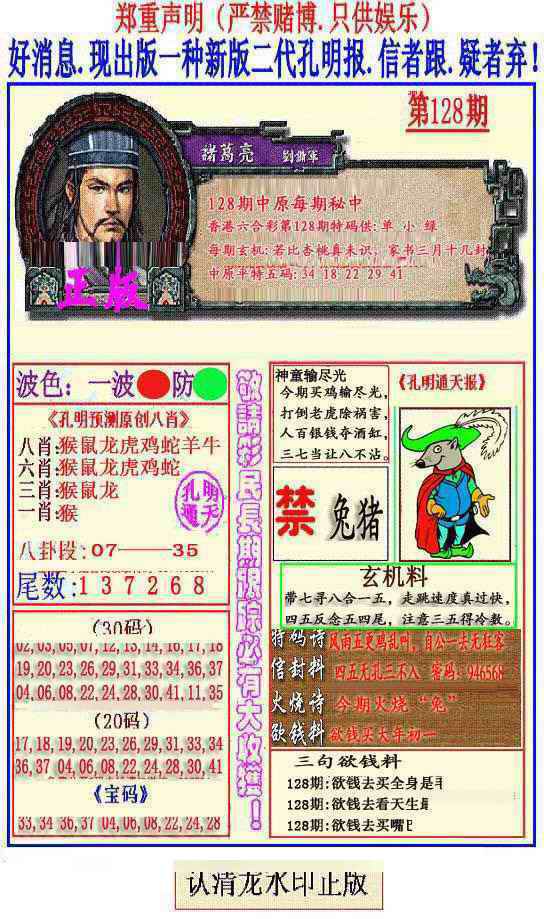 郑重声明（严禁赌博.只供娱乐）
好消息.现出版一种新版二代孔明报.信者跟.疑者弃!
第128期
諸葛亮 劉備軍
128期中原每期秘中
香港六合彩第128期特码供: 单 小 绿
每期玄机: 若比杏桃真未识, 家书三月十几封
中原平特五码: 34 18 22 29 41
正版
波色: 一波 防
《孔明预测原创八肖》
八肖:猴鼠龙虎鸡蛇羊牛
六肖:猴鼠龙虎鸡蛇
三肖:猴鼠龙
一肖:猴
孔明
通天
八卦段: 07——35
尾数: 1 3 7 2 6 8
(30码)
02,03,05,07,12,13,14,16,17,18
19,20,23,26,29,31,33,34,36,37
04,06,08,22,24,28,30,41,11,35
(20码)
17,18,19,20,23,26,29,31,33,34
36,37,04,06,08,22,24,28,30,41
《宝码》
33,34,36,37,04,06,08,22,24,28
敬請彩民長期跟踪必有大收獲!
神童输尽光
今期买鸡输尽光,
打倒老虎除祸害,
人百银钱夺酒缸,
三七当让八不沾。
《孔明通天报》
禁 兔猪
玄机料
带七寻八合一五, 走跳速度真过快,
四五反念五四尾, 注意三五得冷数。
特码诗 风雨五更鸡乱叫, 自公一去无狂客
信封料 四五无孔三不入 密码: 946568
火烧诗 今期火烧“兔”
欲钱料 欲钱买大年初一
三句欲钱料
128期:欲钱去买全身是
128期:欲钱去看天生
128期:欲钱去买嘴
认清龙水印正版